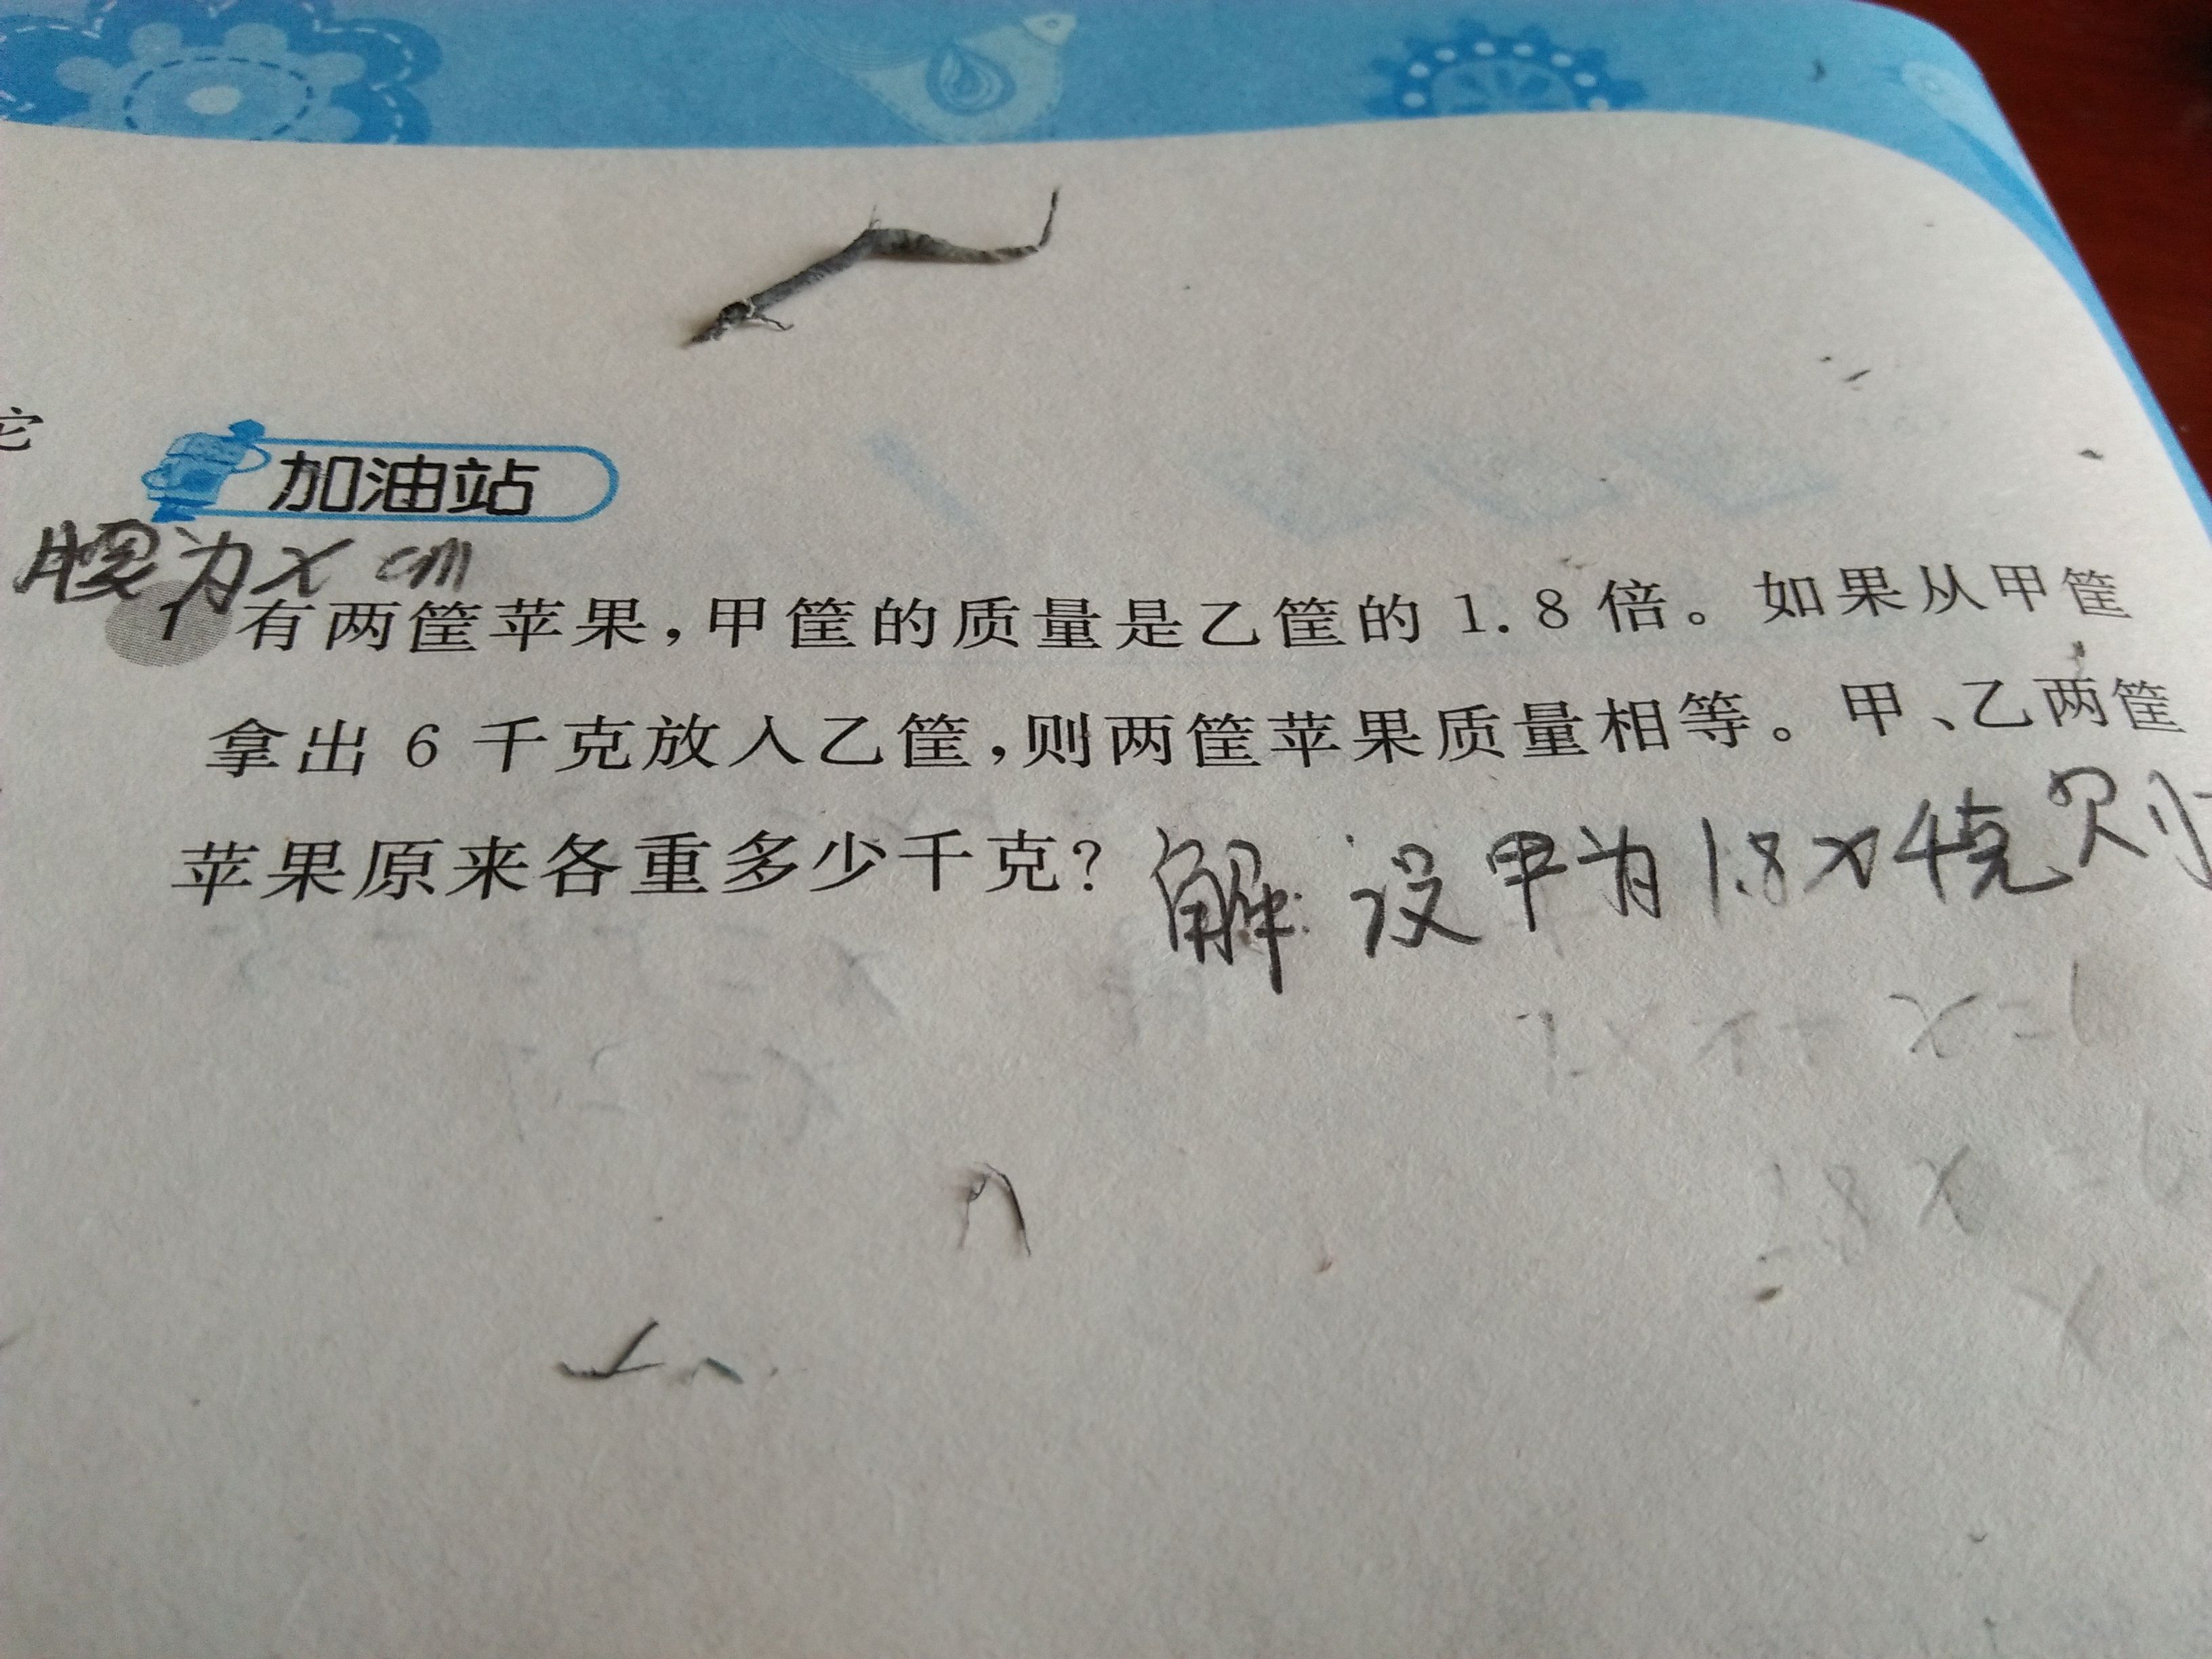 它
加油站
腰为x cm
1 有两筐苹果,甲筐的质量是乙筐的1.8倍。如果从甲筐
拿出6千克放入乙筐,则两筐苹果质量相等。甲、乙两筐
苹果原来各重多少千克?
解:设甲为1.8x千克则